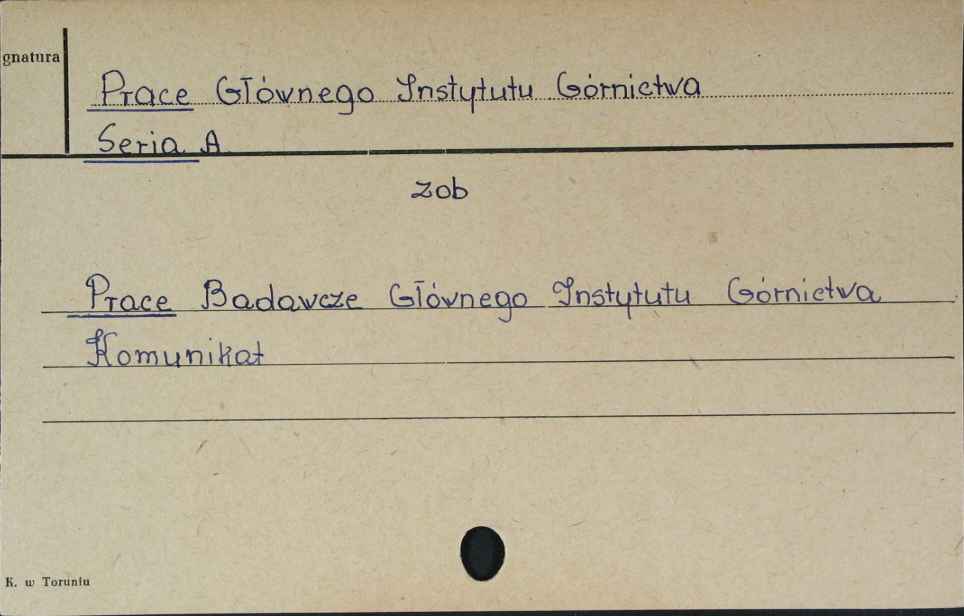 gnatura
Prace Głównego Instytutu Górnictwa
Seria A
zob
Prace Badawcze Głównego Instytutu Górnictwa
Komunikat
K. w Toruniu